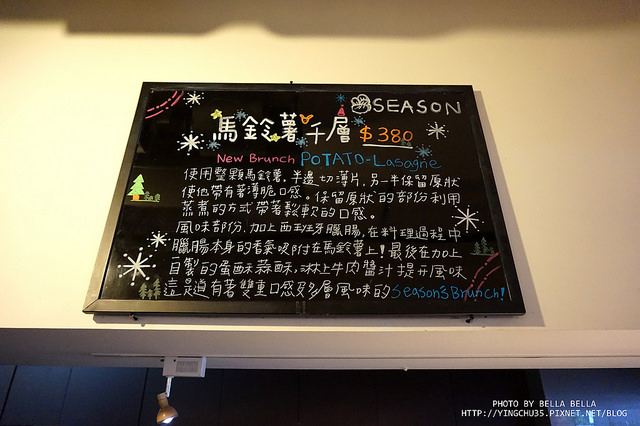 SEASON
馬鈴薯千層 $380
New Brunch POTATO-Lasagne
使用整顆馬鈴薯,半邊切薄片,另一半保留原狀
使他帶有著薄脆口感。保留原狀的部份利用
蒸煮的方式帶著鬆軟的口感。
風味部份,加上西班牙臘腸,在料理過程中
臘腸本身的香氣吸附在馬鈴薯上!最後在加上
自製的蛋酥蒜酥,淋上牛肉醬汁提升風味
這是道有著雙重口感及多層風味的Season's Brunch!
PHOTO BY BELLA BELLA
HTTP://YINGCHU35.PIXNET.NET/BLOG